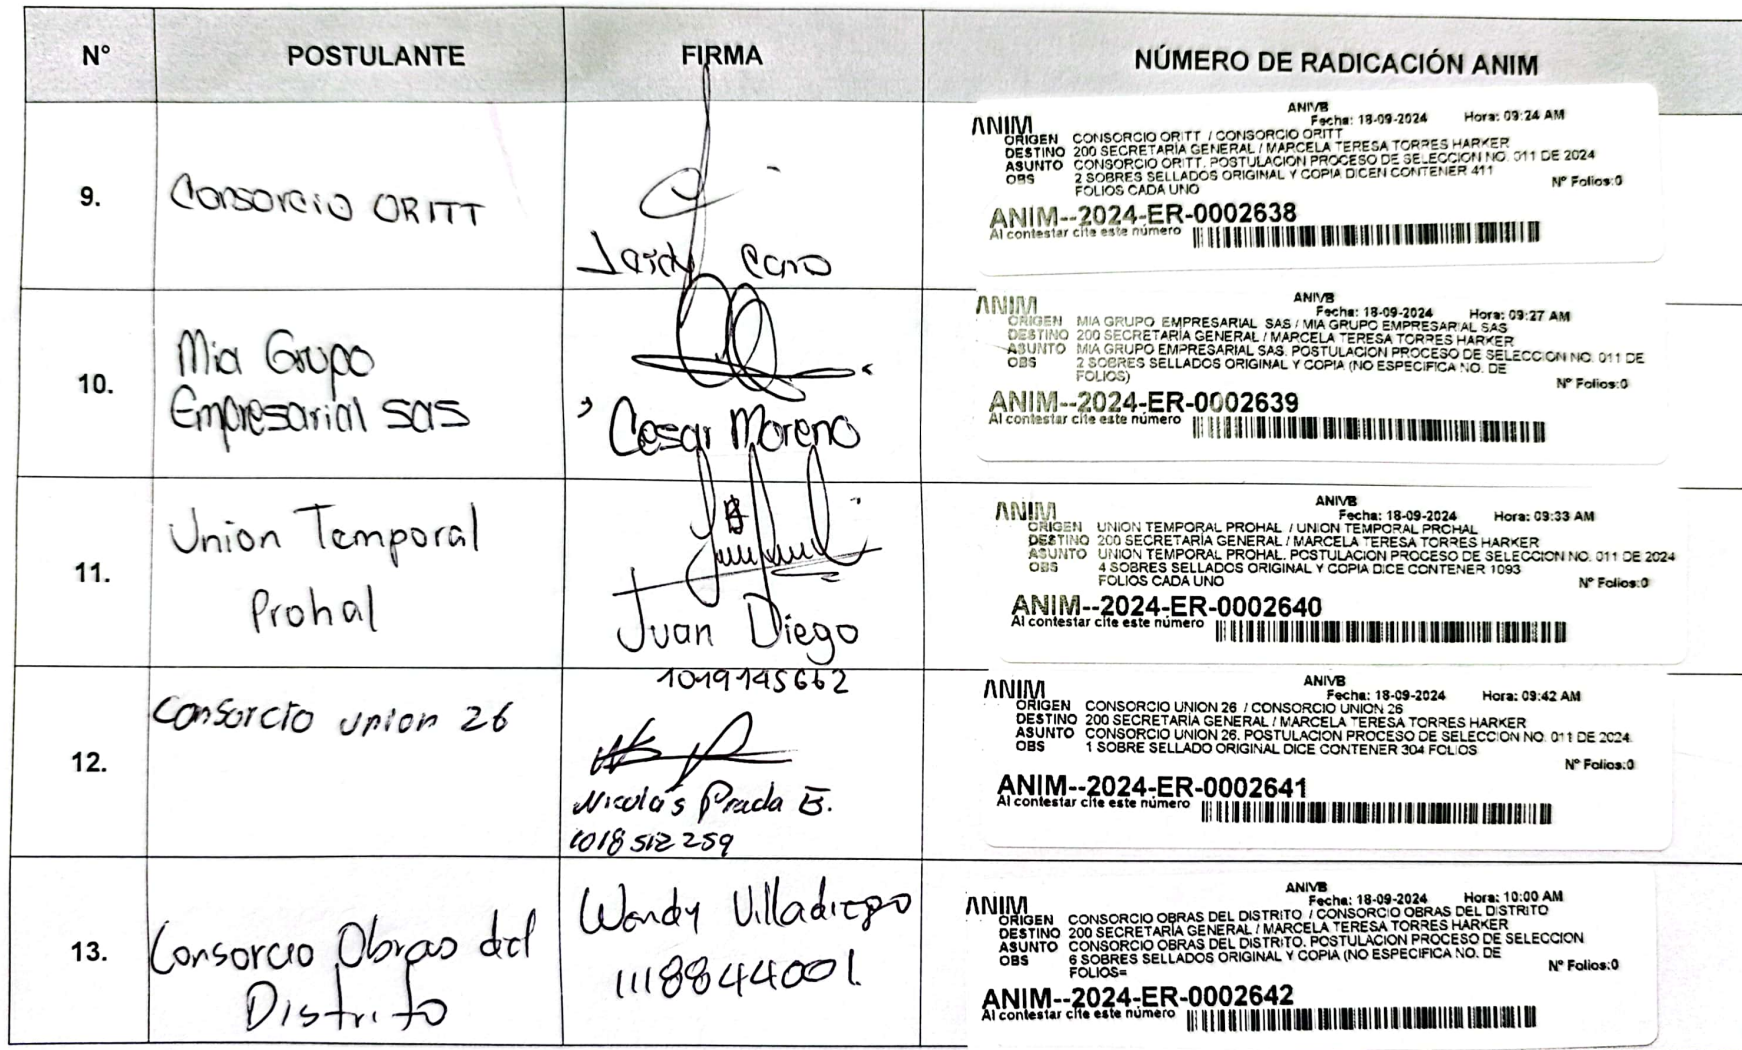 N° POSTULANTE FIRMA NÚMERO DE RADICACIÓN ANIM
9.
Consorcio ORITT
Jaidy Caro
ANIVB
ANIM Fecha: 18-09-2024 Hora: 09:24 AM
ORIGEN CONSORCIO ORITT / CONSORCIO ORITT
DESTINO 200 SECRETARIA GENERAL / MARCELA TERESA TORRES HARKER
ASUNTO CONSORCIO ORITT. POSTULACION PROCESO DE SELECCION NO. 011 DE 2024
OBS 2 SOBRES SELLADOS ORIGINAL Y COPIA DICEN CONTENER 411
FOLIOS CADA UNO N° Folios:0
ANIM--2024-ER-0002638
Al contestar cite este número
10.
Mia Grupo
Empresarial SAS
Cesar Moreno
ANIVB
ANIM Fecha: 18-09-2024 Hora: 09:27 AM
ORIGEN MIA GRUPO EMPRESARIAL SAS / MIA GRUPO EMPRESARIAL SAS
DESTINO 200 SECRETARIA GENERAL / MARCELA TERESA TORRES HARKER
ASUNTO MIA GRUPO EMPRESARIAL SAS. POSTULACION PROCESO DE SELECCION NO. 011 DE
OBS 2 SOBRES SELLADOS ORIGINAL Y COPIA (NO ESPECIFICA NO. DE
FOLIOS) N° Folios:0
ANIM--2024-ER-0002639
Al contestar cite este número
11.
Union Temporal
Prohal
Juan Diego
1019145662
ANIVB
ANIM Fecha: 18-09-2024 Hora: 09:33 AM
ORIGEN UNION TEMPORAL PROHAL / UNION TEMPORAL PROHAL
DESTINO 200 SECRETARIA GENERAL / MARCELA TERESA TORRES HARKER
ASUNTO UNION TEMPORAL PROHAL. POSTULACION PROCESO DE SELECCION NO. 011 DE 2024
OBS 4 SOBRES SELLADOS ORIGINAL Y COPIA DICE CONTENER 1093
FOLIOS CADA UNO N° Folios:0
ANIM--2024-ER-0002640
Al contestar cite este número
12.
Consorcio union 26
Nicolás Prada E.
1018512259
ANIVB
ANIM Fecha: 18-09-2024 Hora: 09:42 AM
ORIGEN CONSORCIO UNION 26 / CONSORCIO UNION 26
DESTINO 200 SECRETARIA GENERAL / MARCELA TERESA TORRES HARKER
ASUNTO CONSORCIO UNION 26. POSTULACION PROCESO DE SELECCION NO. 011 DE 2024
OBS 1 SOBRE SELLADO ORIGINAL DICE CONTENER 304 FOLIOS
N° Folios:0
ANIM--2024-ER-0002641
Al contestar cite este número
13.
Consorcio Obras del
Distrito
Wendy Villadiego
1118844001.
ANIVB
ANIM Fecha: 18-09-2024 Hora: 10:00 AM
ORIGEN CONSORCIO OBRAS DEL DISTRITO / CONSORCIO OBRAS DEL DISTRITO
DESTINO 200 SECRETARIA GENERAL / MARCELA TERESA TORRES HARKER
ASUNTO CONSORCIO OBRAS DEL DISTRITO. POSTULACION PROCESO DE SELECCION
OBS 6 SOBRES SELLADOS ORIGINAL Y COPIA (NO ESPECIFICA NO. DE
FOLIOS= N° Folios:0
ANIM--2024-ER-0002642
Al contestar cite este número